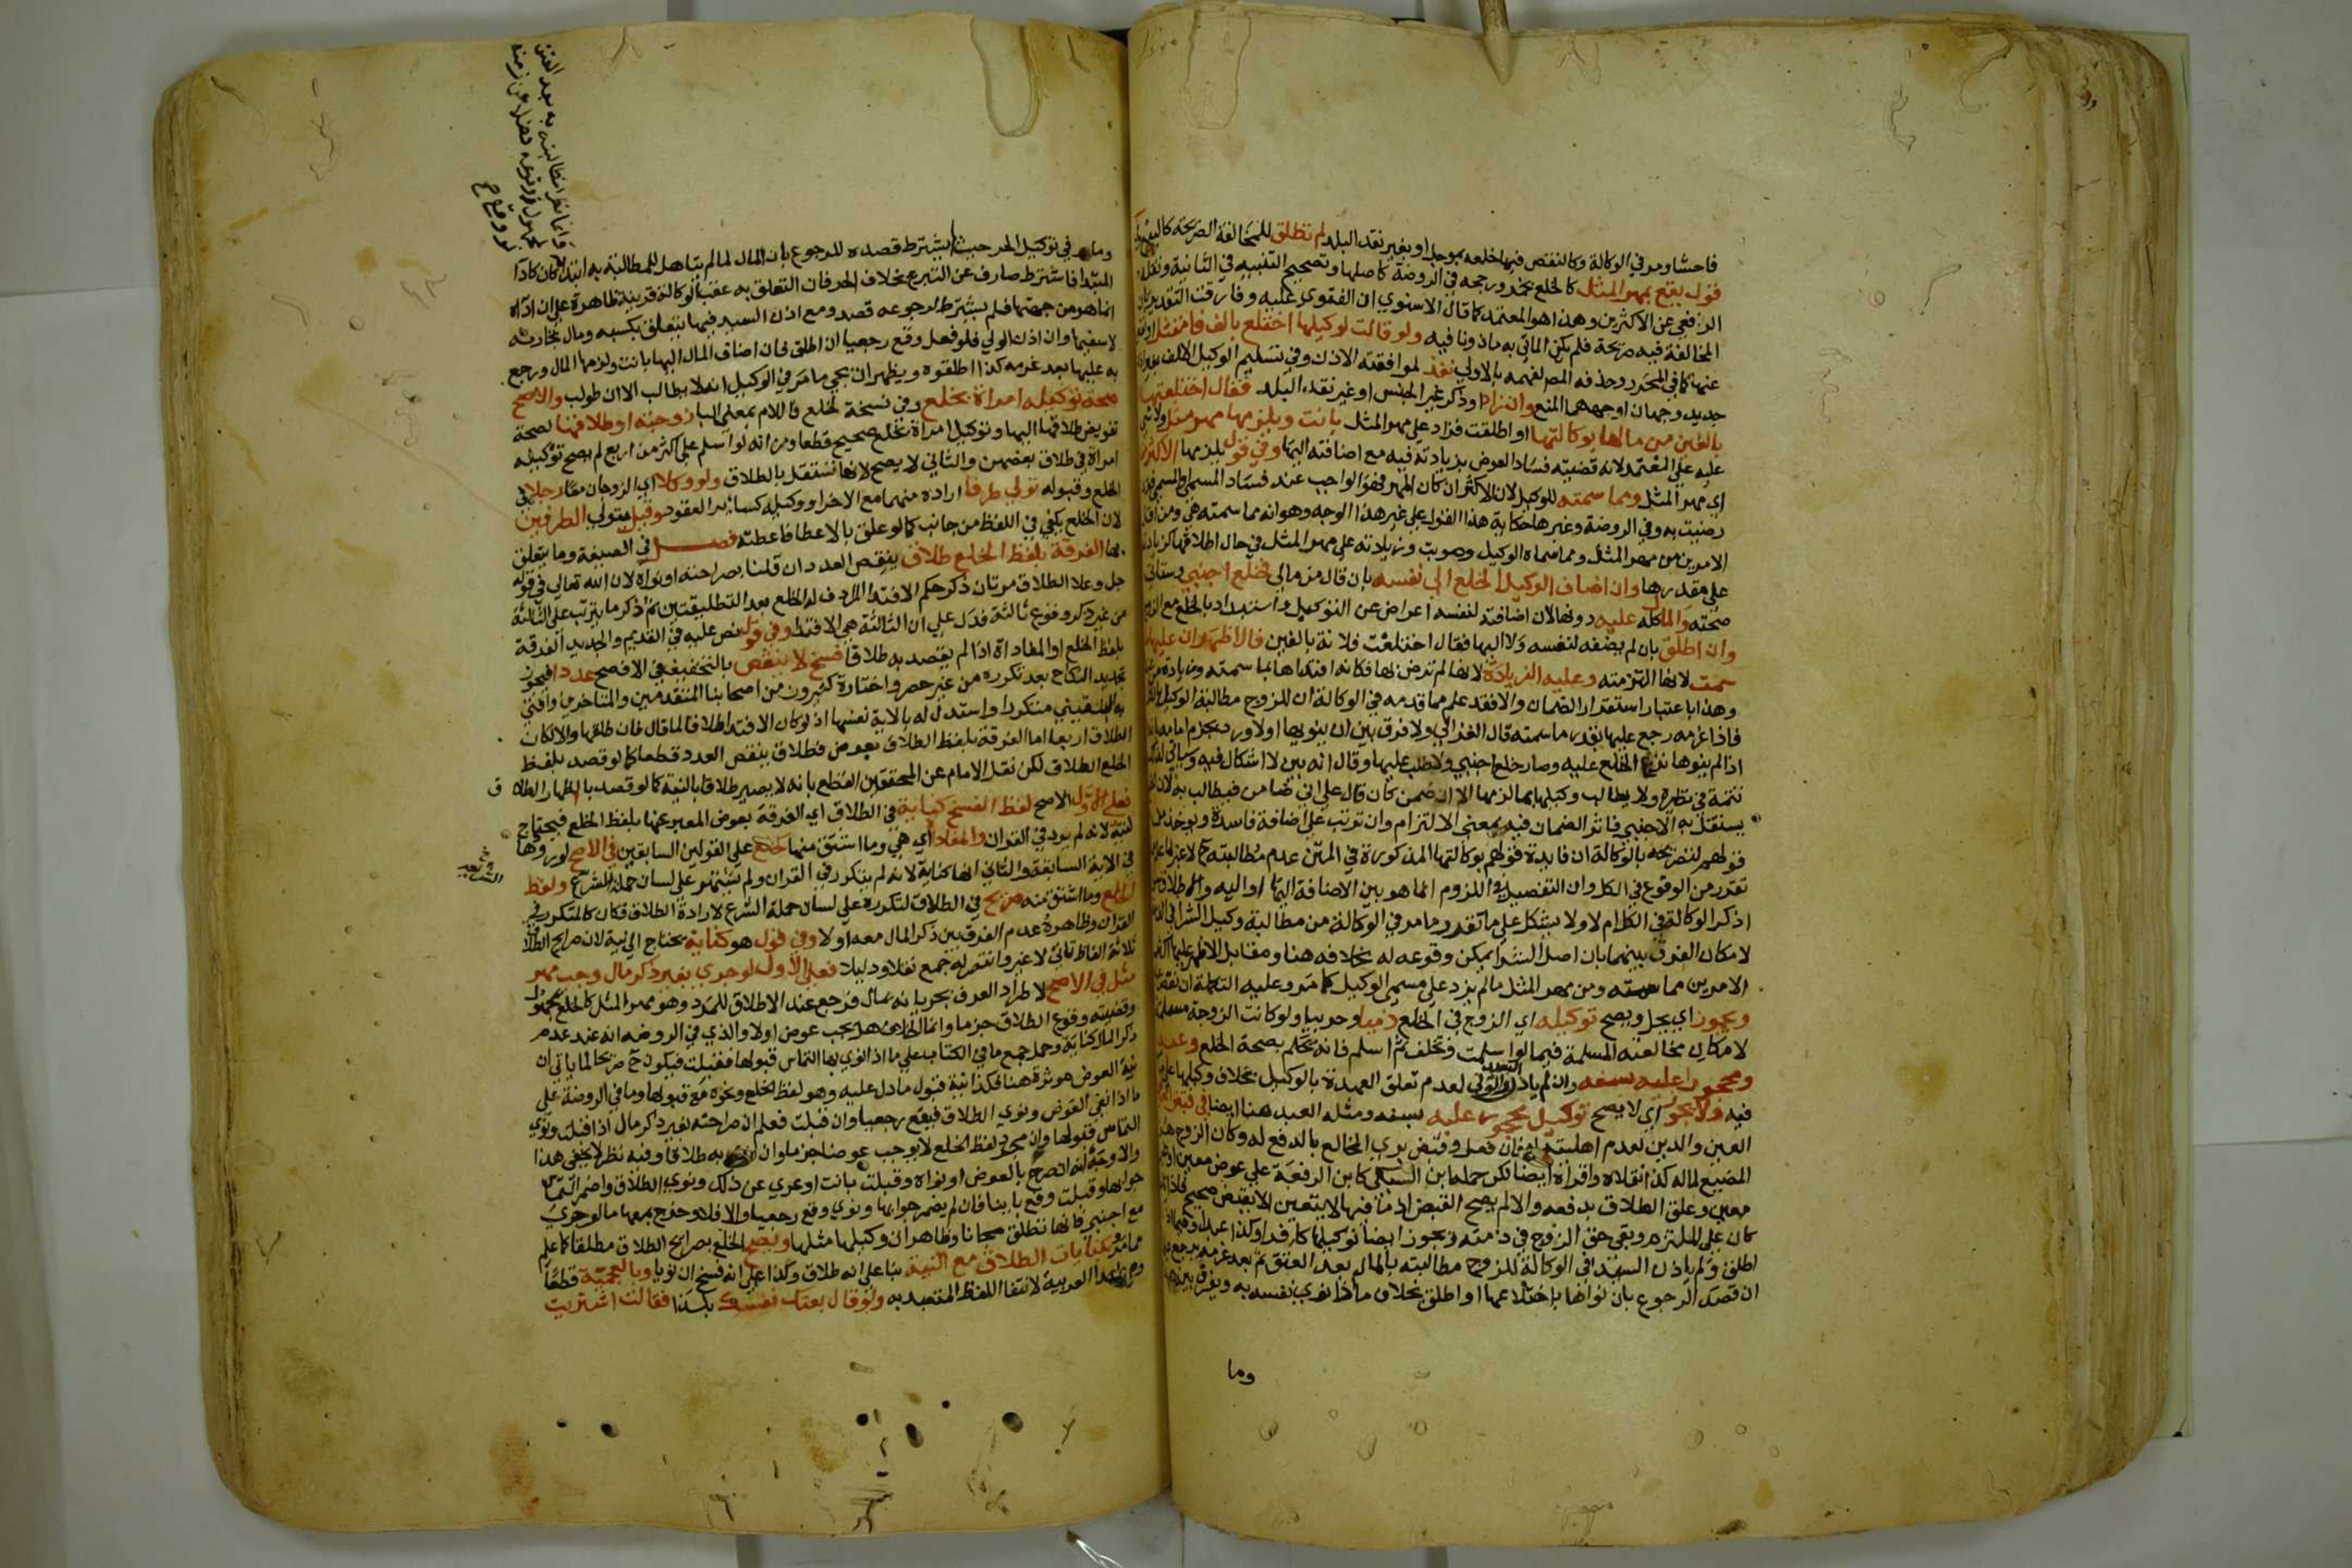 فاحشا ومر في الوكالة وكالنقص فيها خلعه بموجل او بغير نقد البلد لم تطلق للمخالفة الصريحة كالبيع وفي
قول يقع بمهر المثل كالخلع بخمر ورجحه في الروضة كاصلها وتصحيح التنبيه في الثانية ونقله
الرافعي عن الاكثرين وهذا هو المعتمد كما قال الاسنوي ان الفتوى عليه وفارقت التقدير بان
المخالفة فيه صريحة فلم يكن الماتي به ماذونا فيه ولو قالت لوكيلها اختلع بالف فامتثل او نقص
عنها كما في المحرر وحذفه المص لفهمه بالاولى نفذ لموافقته الاذن وفي تسليم الوكيل الالف بغير اذن
جديد وجهان اوجههما المنع وان زاد او ذكر غير الجنس او غير نقد البلد فقال اختلعتها
بالفين من مالها بوكالتها او اطلقت فزاد على مهر المثل بانت ويلزمها مهر مثل ولا شي
عليه على المعتمد لانه قضية فساد العوض بزيادته فيه مع اضافته اليها وفي قول يلزمها الاكثر من
اي مهر المثل ومما سمته للوكيل لان الاكثر ان كان المهر فهو الواجب عند فساد المسمى والمسمى فقد
رضيت به وفي الروضة وغيرها حكاية هذا القول على غير هذا الوجه وهو انه مما سمته هي ومن اقل
الامرين من مهر المثل ومما سماه الوكيل وصوبت وزيادته على مهر المثل في حال اطلاقها كزيادته
على مقدرها وان اضاف الوكيل الخلع الى نفسه بان قال من مالي فخلع اجنبي وستاتي
صحته والمال كله عليه دونها لان اضافته لنفسه اعراض عن التوكيل واستبداد بالخلع مع الزوج
وان اطلق بان لم يضفه لنفسه ولا اليها فقال اختلعت فلانة بالفين فالاظهر ان عليها ما
سمت لانها التزمته وعليه الزيادة لانها لم ترض بها فكانه افتداها بما سمته وزيادة من عنده
وهذا باعتبار استقرار الضمان والا فقد علم مما قدمه في الوكالة ان للزوج مطالبة الوكيل بالكل
فاذا غرمه رجع عليها بقدر ما سمته قال الغزالي ولا فرق بين ان ينويها اولا ورد بجزم امامه بانه
اذا لم ينوها نزل الخلع عليه وصار خلع اجنبي ولا طلب عليها وقال انه بين لا اشكال فيه وسياتي لذلك
تتمة في نظيره ولا يطالب وكيلها بما لزمها الا ان ضمن كان قال على اني ضامن فيطالب به لان الخلع
يستقل به الاجنبي فاثر الضمان فيه بمعنى الالتزام وان ترتب على اضافة فاسدة ويوخذ من
قولهم لتصريحه بالوكالة ان فايدة قولهم بوكالتها المذكورة في المتن عدم مطالبته ح لا غير لما علم
تقرر من الوقوع في الكل وان التفصيل في اللزوم انما هو بين الاضافة اليها او اليه والاطلاق من
اذكر الوكالة في الكلام ام لا ولا يشكل على ما تقرر ما مر في الوكالة من مطالبة وكيل الشرا في الذمة
لامكان الفرق بينهما بان اصل الشرا يمكن وقوعه له بخلافه هنا ومقابل الاظهر عليها اكثر
الامرين مما سمته ومن مهر المثل ما لم يزد على مسمى الوكيل كما مر وعليه التكملة ان نقص
ويجوز اي يحل ويصح توكيله اي الزوج في الخلع ذميا وحربيا ولو كانت الزوجة مسلمة
لامكان مخالعته المسلمة فيما لو اسلمت وتخلف ثم اسلم فانه يحكم بصحة الخلع وعبدا
ومحجورا عليه بسفه وان لم ياذن السيد والولي لعدم تعلق العهدة بالوكيل بخلاف وكيلها على ما
فيه ولا يجوز اي لا يصح توكيل محجور عليه بسفه ومثله العبد هنا ايضا في قبض
العين والدين لعدم اهليته لهما فان فعل وقبض بري المخالع بالدفع له وكان الزوج هو
المضيع لماله كذا نقلاه واقراه ايضا لكن حمله ابن السبكي كابن الرفعة على عوض معين او غير
معين وعلق الطلاق بدفعه والا لم يصح القبض اذ ما فيها لا يتعين الا بقبض صحيح فاذا تلف
كان على الملتزم وبقي حق الزوج في ذمته ويجوز ايضا توكيلها كافرا وكذا عبدا وفيما اذا
اطلق ولم ياذن السيد في الوكالة للزوج مطالبته بالمال بعد العتق ثم بعد غرمه يرجع عليها
ان قصد الرجوع بان نواها باختلاعها او اطلق بخلاف ما اذا نوى نفسه به ويفرق بينه
وما
وما مر في توكيل الحر حيث لم يشترط قصده للرجوع بان المال لما لم يتاهل للمطالبة به ابتدا كان كاداء
المبتدا فاشترط صارف عن التبرع بخلاف الحر فان التعلق به عقب الوكالة قرينة ظاهرة على ان اداه
انما هو من جهتها فلم يشترط لرجوعه قصد ومع اذن السيد فيها يتعلق بكسبه ومال تجارته
لا سفيها وان اذن الولي فلو فعل وقع رجعيا ان اطلق فان اضاف المال اليها بانت ولزمها المال ورجع
به عليها بعد غرمه كذا اطلقوه ويظهر ان يجي ما مر في الوكيل انه لا يطالب الا ان طولب والاصح
صحة توكيله امراة بخلع وفي نسخة لخلع فاللام بمعنى البا زوجته او طلاقها لصحة
تفويض طلاقها اليها وتوكيل امراة تختلع صحيح قطعا ومر انه لو اسلم على اكثر من اربع لم يصح توكيله
امراة في طلاق بعضهن والثاني لا يصح لانها لا تستقل بالطلاق ولو وكلا اي الزوجان معا رجلا في
الخلع وقبوله تولى طرفا اراده منهما مع الاخر او وكيله كسائر العقود وقيل يتولى الطرفين
لان الخلع يكفي فيه اللفظ من جانب كما لو علق بالاعطا فاعطته فصل في الصيغة وما يتعلق
بها الفرقة بلفظ الخلع طلاق ينقص العدد ان قلنا بصراحته او نواه لان الله تعالى في قوله
جل وعلا الطلاق مرتان ذكر حكم الافتدا المرادف له الخلع بعد التطليقتين ثم ذكر ما يترتب على الثالثة
من غير ذكر وقوع ثالثة فدل على ان الثالثة هي الافتدا وفي قول نص عليه في القديم والجديد الفرقة
بلفظ الخلع او المفاداة اذا لم يقصد به طلاقا فسخ لا ينقص بالتخفيف في الافصح عددا فيجوز
تجديد النكاح بعد تكرره من غير حصر واختاره كثيرون من اصحابنا المتقدمين والمتاخرين وافتى
به البلقيني متكررا واستدل له بالاية نفسها اذ لو كان الافتدا طلاقا لما قال فان طلقها والا لكان
الطلاق اربعا اما الفرقة بلفظ الطلاق بعوض فطلاق ينقص العدد قطعا كما لو قصد بلفظ
الخلع الطلاق لكن نقل الامام عن المحققين القطع بانه لا يصير طلاقا بالنية كما لو قصد بالظهار الطلاق
فعلى الاول الاصح لفظ الفسخ كناية في الطلاق اي الفرقة بعوض المعبر عنها بلفظ الخلع فيحتاج
لنية لانه لم يرد في القران والمفاداة اي هي وما اشتق منها كخلع على القولين السابقين في الاصح لورودها
في الاية السابقة والثاني انها كناية لانه لم يتكرر في القران ولم يشتهر على لسان حملة الشرع ولفظ
الخلع وما اشتق منه صريح في الطلاق لتكرره على لسان حملة الشرع لارادة الطلاق فكان كالمتكرر في
القران وظاهره عدم الفرق بين ذكر المال معه اولا وفي قول هو كناية يحتاج الى نية لان صرايح الطلاق
ثلاثة الفاظ تاتي لا غير وانتصر له جمع نقلا ودليلا فعلى الاول لو جرى بغير ذكر مال وجب مهر
مثل في الاصح لاطراد العرف بجريانه بمال فرجع عند الاطلاق للمرد وهو مهر المثل كالخلع بمجهول
وقضيته وقوع الطلاق جزما وانما الخلاف هل يجب عوض اولا والذي في الروضة انه عند عدم
ذكر المال كناية وحمل جمع ما في الكتاب على ما اذا نوى بها التماس قبولها فقبلت فيكون ح صريحا لما ياتي ان
نية العوض موثرة هنا فكذا نية قبول ما دل عليه وهو لفظ الخلع ونحوه مع قبولها وما في الروضة على
ما اذا نفى العوض ونوى الطلاق فيقع رجعيا وان قبلت فعلم ان صراحته بغير ذكر مال اذا قبلت ونوى
التماس قبولها وان مجرد لفظ الخلع لا يوجب عوضا جزما وان نوى به طلاقا وفيه نظر لا يخفى هذا
والاوجه انه ان صرح بالعوض او نواه وقبلت بانت او عري عن ذلك ونوى الطلاق واضمر التماس
جوابها وقبلت وقع باينا فان لم يضمر جوابها ونوى وقع رجعيا والا فلا وخرج بمعها ما لو جرى
مع اجنبي فانها تطلق مجانا وظاهر ان وكيلها مثلها ويصح الخلع بصرايح الطلاق مطلقا كما علم
مما مر وبكنايات الطلاق مع النية بنا على انه طلاق وكذا على انه فسخ ان نويا وبالعجمية قطعا
العربية لانتفا اللفظ المتعبد به ولو قال بعتك نفسك بكذا فقالت اشتريت
وانما نظر المطالبته به بعد العتق
لو وقع ح